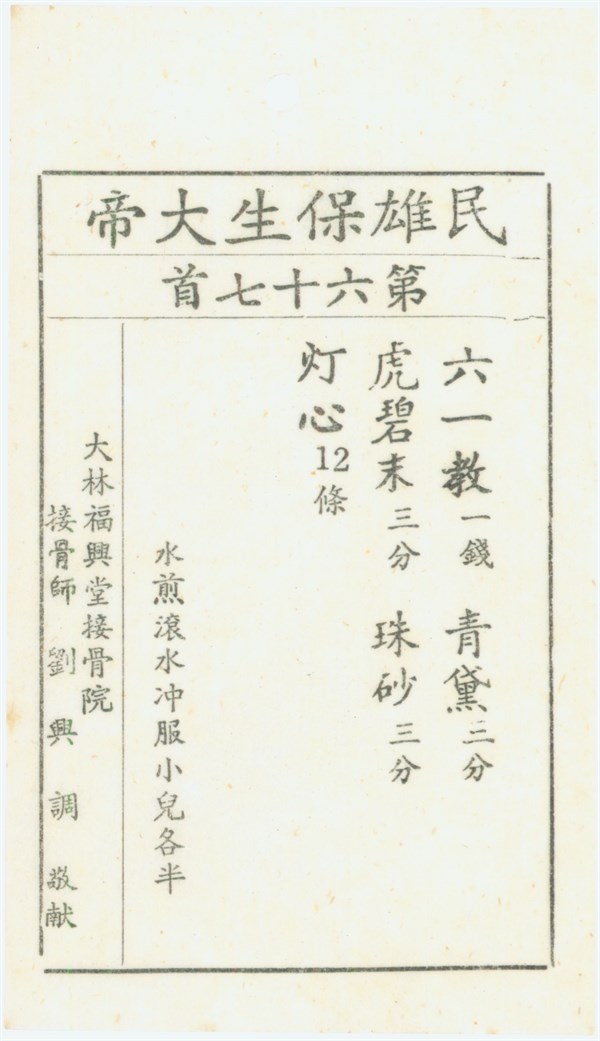 民雄保生大帝
第六十七首
六一教一錢　青黛三分
虎碧末三分　珠砂三分
灯心12條
水煎滾水冲服小兒各半
大林福興堂接骨院
接骨師　劉興調　敬献